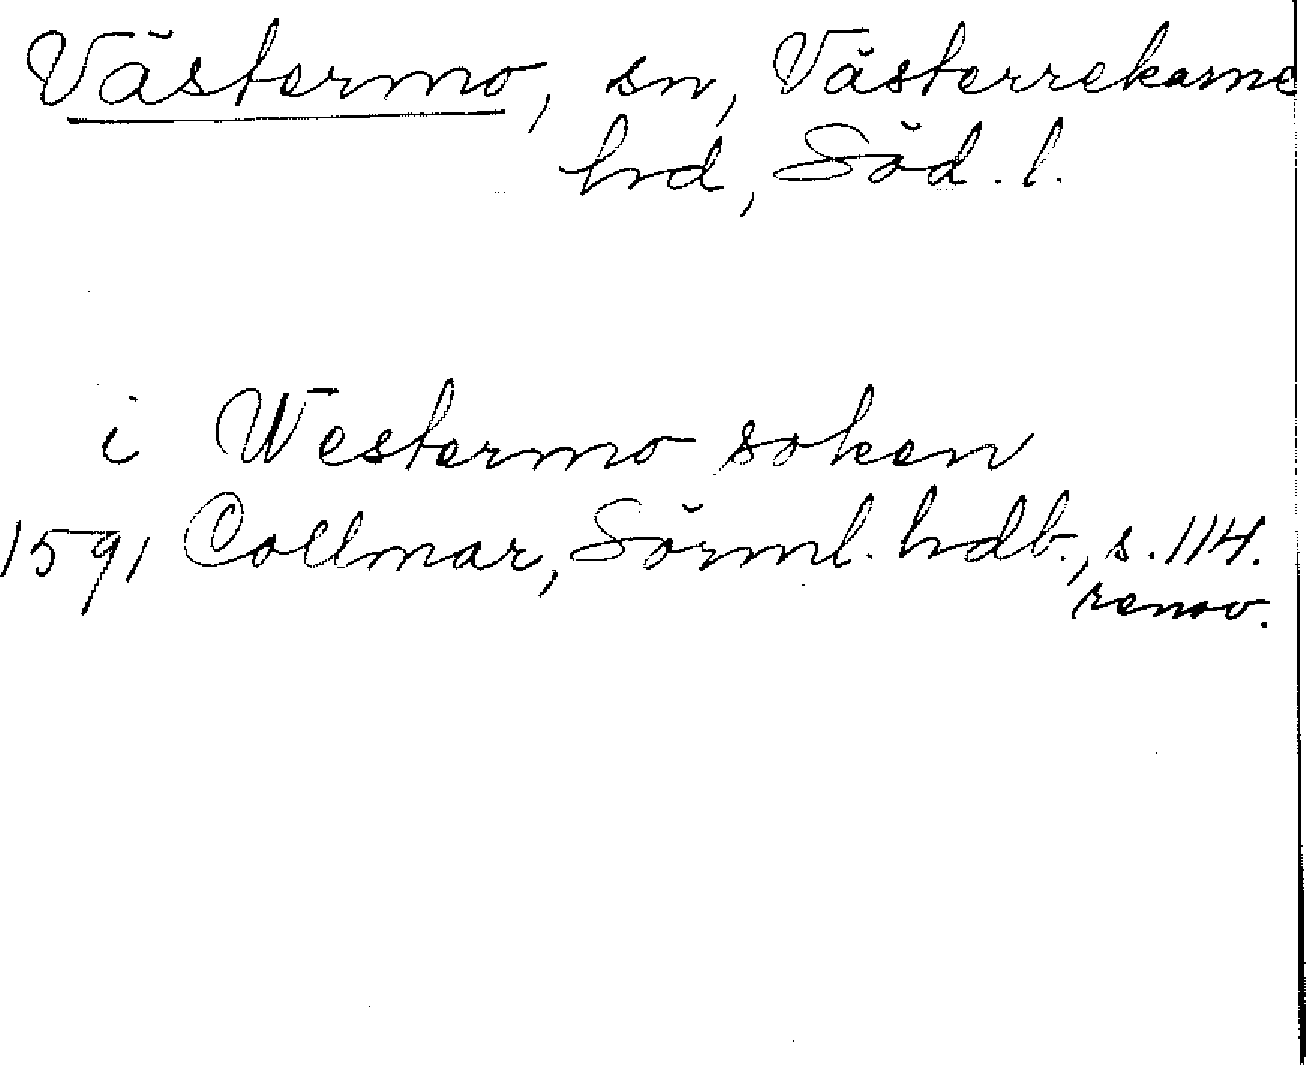 Västermo, sn, Västerrekarne
hrd, Söd. l.
i Westermo soken
1591 Collmar, Sörml. hdb., s. 114.
renov.